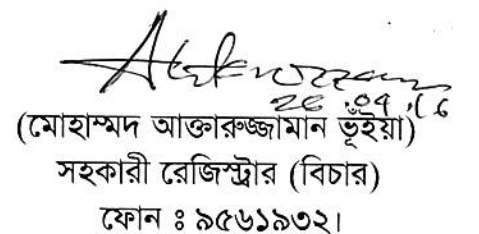 26.04.16
(মোহাম্মদ আক্তারুজ্জামান ভূঁইয়া)
সহকারী রেজিস্ট্রার (বিচার)
ফোন ঃ ৯৫৬১৯৩২।